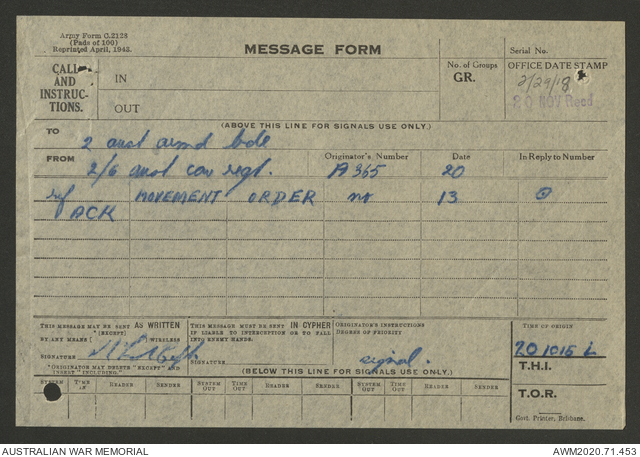 Army Form C.2128
(Pads of 100)
Reprinted April, 1943.
MESSAGE FORM
Serial No.
CALL
AND
INSTRUC-
TIONS.
IN
OUT
No. of Groups
GR.
OFFICE DATE STAMP
2/29/18
20 NOV Recd
(ABOVE THIS LINE FOR SIGNALS USE ONLY.)
TO 2 aust armd bde
FROM 2/6 aust cav regt.
Originator's Number A365
Date 20
In Reply to Number
ref MOVEMENT ORDER no 13 ⊙
ACK
THIS MESSAGE MAY BE SENT AS WRITTEN
"(EXCEPT)
BY ANY MEANS ( WIRELESS
SIGNATURE
"ORIGINATOR MAY DELETE "EXCEPT" AND
INSERT "INCLUDING."
THIS MESSAGE MUST BE SENT IN CYPHER
IF LIABLE TO INTERCEPTION OR TO FALL
INTO ENEMY HANDS.
SIGNATURE
ORIGINATOR'S INSTRUCTIONS
DEGREE OF PRIORITY
signal.
TIME OF ORIGIN
201015 L
T.H.I.
T.O.R.
(BELOW THIS LINE FOR SIGNALS USE ONLY.)
SYSTEM IN TIME IN READER SENDER SYSTEM OUT TIME OUT READER SENDER SYSTEM OUT TIME OUT READER SENDER
Govt. Printer, Brisbane.
AUSTRALIAN WAR MEMORIAL
AWM2020.71.453